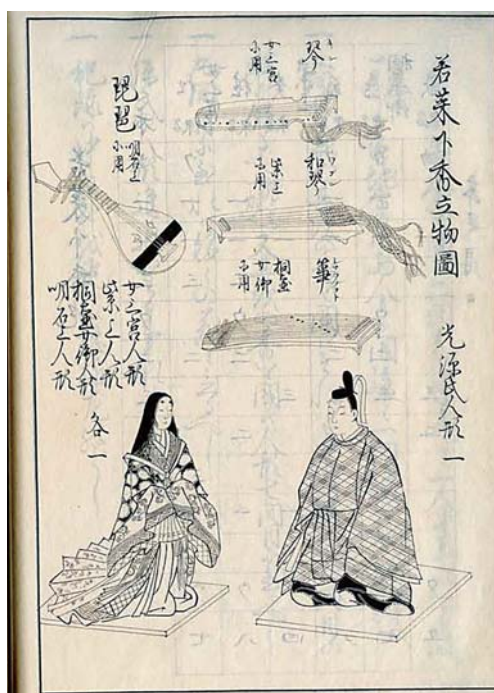 若菜下香立物圖
光源氏人形 一
琴
女三宮
所用
和琴
紫上
所用
箏
桐壺
女御
所用
琵琶
明石上
所用
女三宮人形
紫上人形
桐壺女御人形
明石上人形
各一